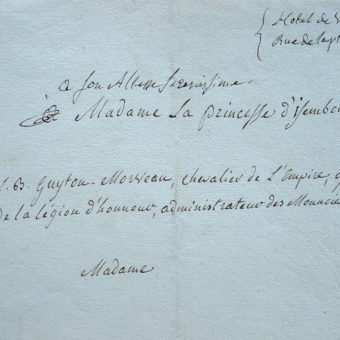 Hotel de
a Son Altesse Serenissime
Madame La princesse d'isembo
L. B. Guyton-Morveau, chevalier de L'Empire, o
de la légion d'honneur, administrateur des Monnoie
Madame